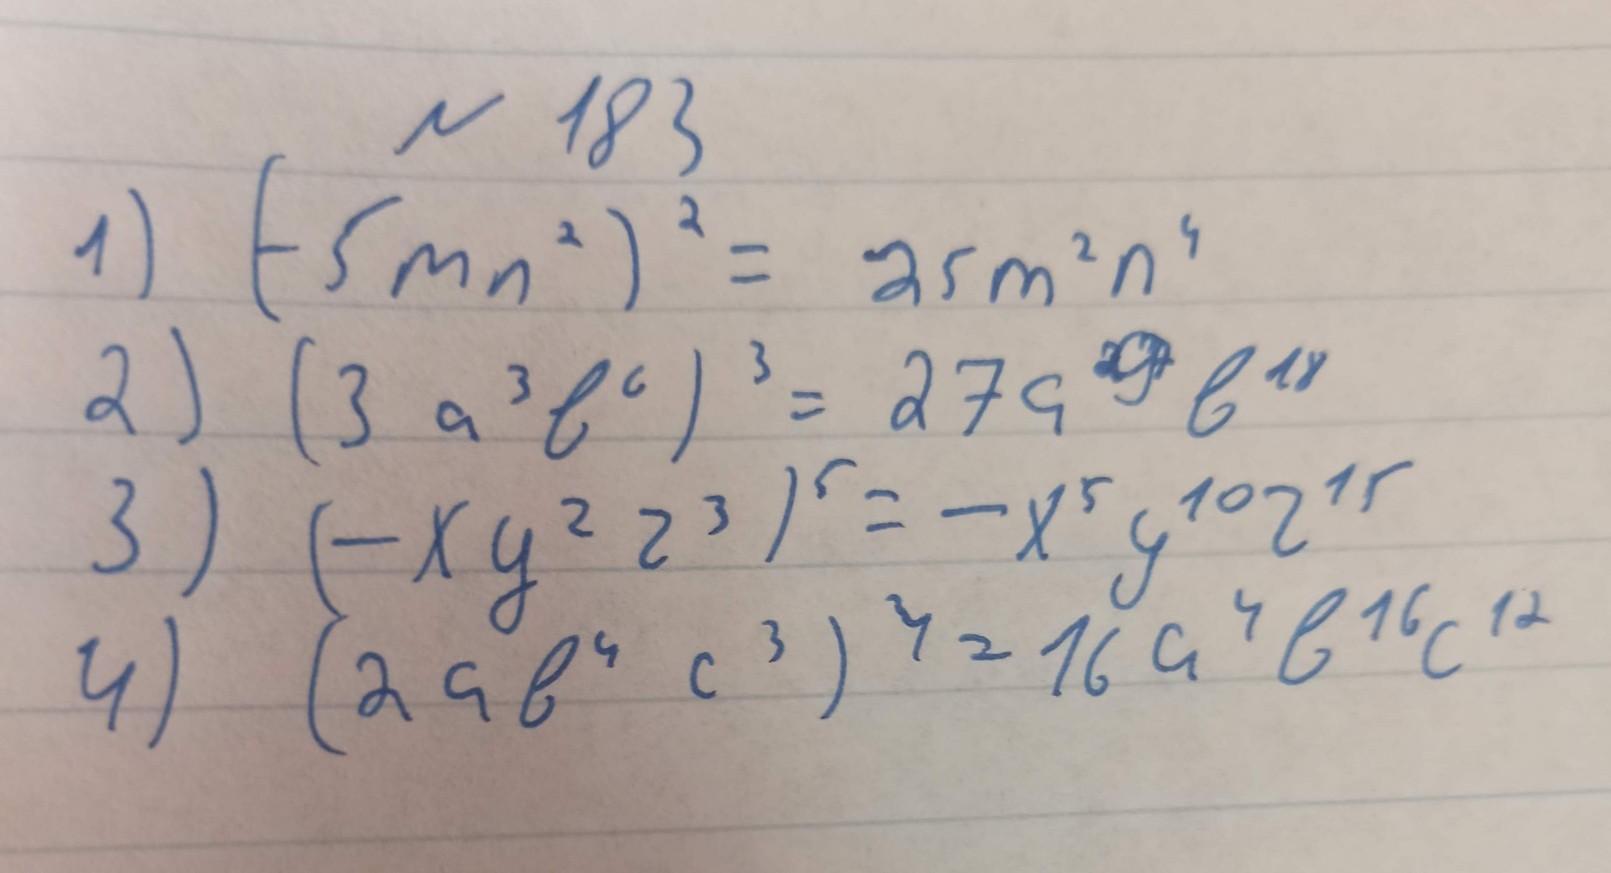 № 183
1) (-5mn²)² = 25m²n⁴
2) (3a³b⁶)³ = 27a b¹⁸
3) (-xy²z³)⁵ = -x⁵y¹⁰z¹⁵
4) (2ab⁴c³)⁴ = 16a⁴b¹⁶c¹²